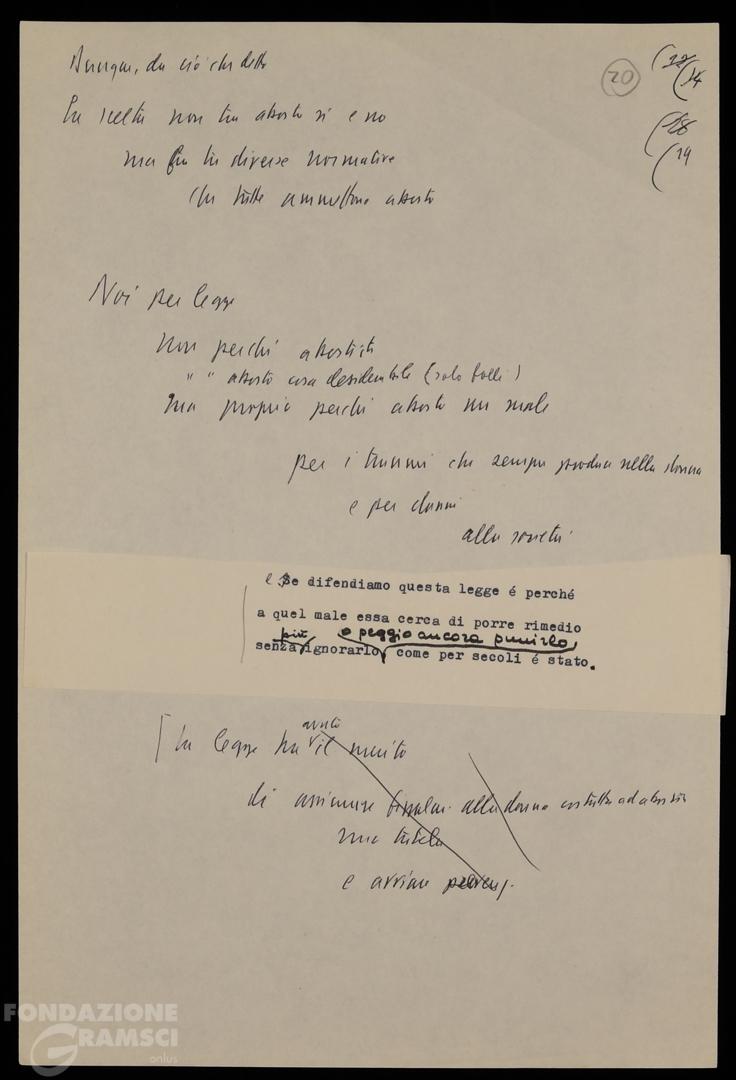 Dunque, da ciò che detto
20
(12
(14
(18
(19
La scelta non tra aborto sì e no
ma fra tre diverse normative
che tutte ammettono aborto
Noi per legge
non perché abortisti
" " aborto cosa desiderabile (solo folli)
ma proprio perché aborto un male
per i traumi che sempre produce nella donna
e per danni
alla società
e Se difendiamo questa legge é perché
a quel male essa cerca di porre rimedio
più o peggio ancora punirlo,
senza ignorarlo, come per secoli é stato.
La legge ha avuto il merito
di assicurare alla donna costretta ad abortire
una tutela
e avviare
FONDAZIONE
GRAMSCI
onlus